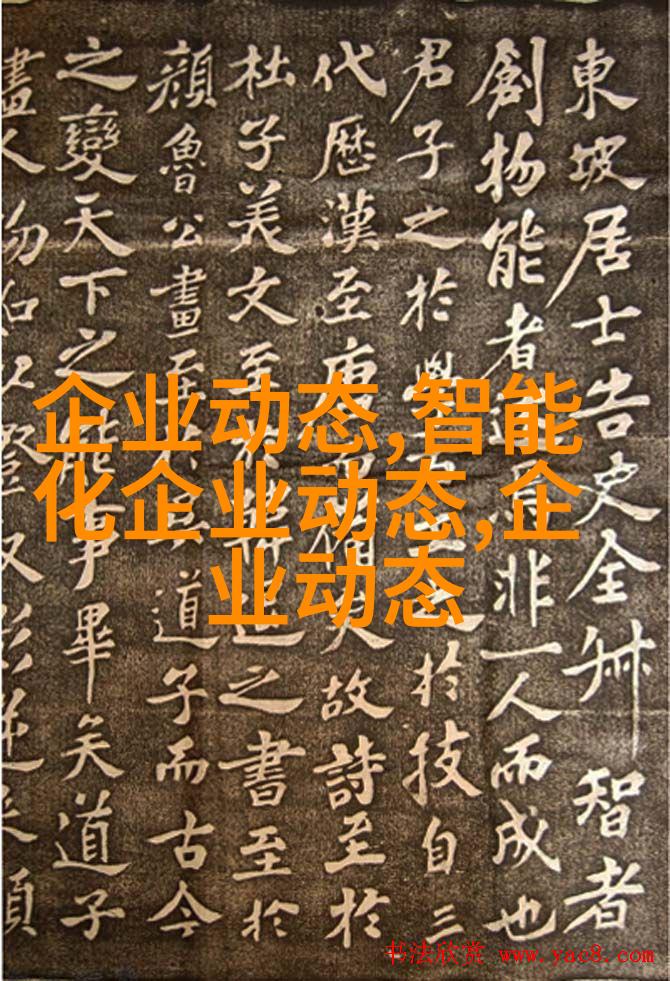 東坡居士告史全叔智者
創物能者述焉非一人而成也
君子之於學百工之於技自三
代歷漢至唐而備矣故詩至於
杜子美文至於韓退之書至於
顏魯公畫至於吳道子而古今
之變天下之能事畢矣道子
畫人物如以燈取影逆來順
企业动态,智能
化企业动态,企
业动态
书法欣赏 www.yac8.com